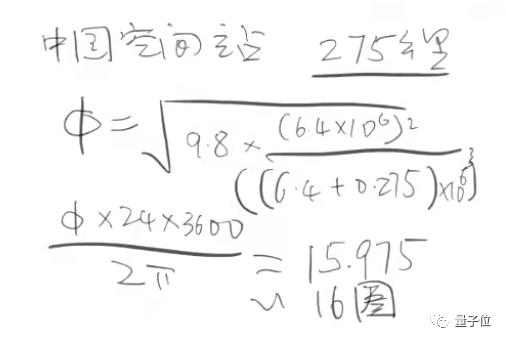 中国空间站 275公里
φ = √(9.8 × (6.4×10⁶)² / ((6.4+0.275)×10⁶)³)
φ×24×3600 / 2π = 15.975
≈ 16圈
量子位